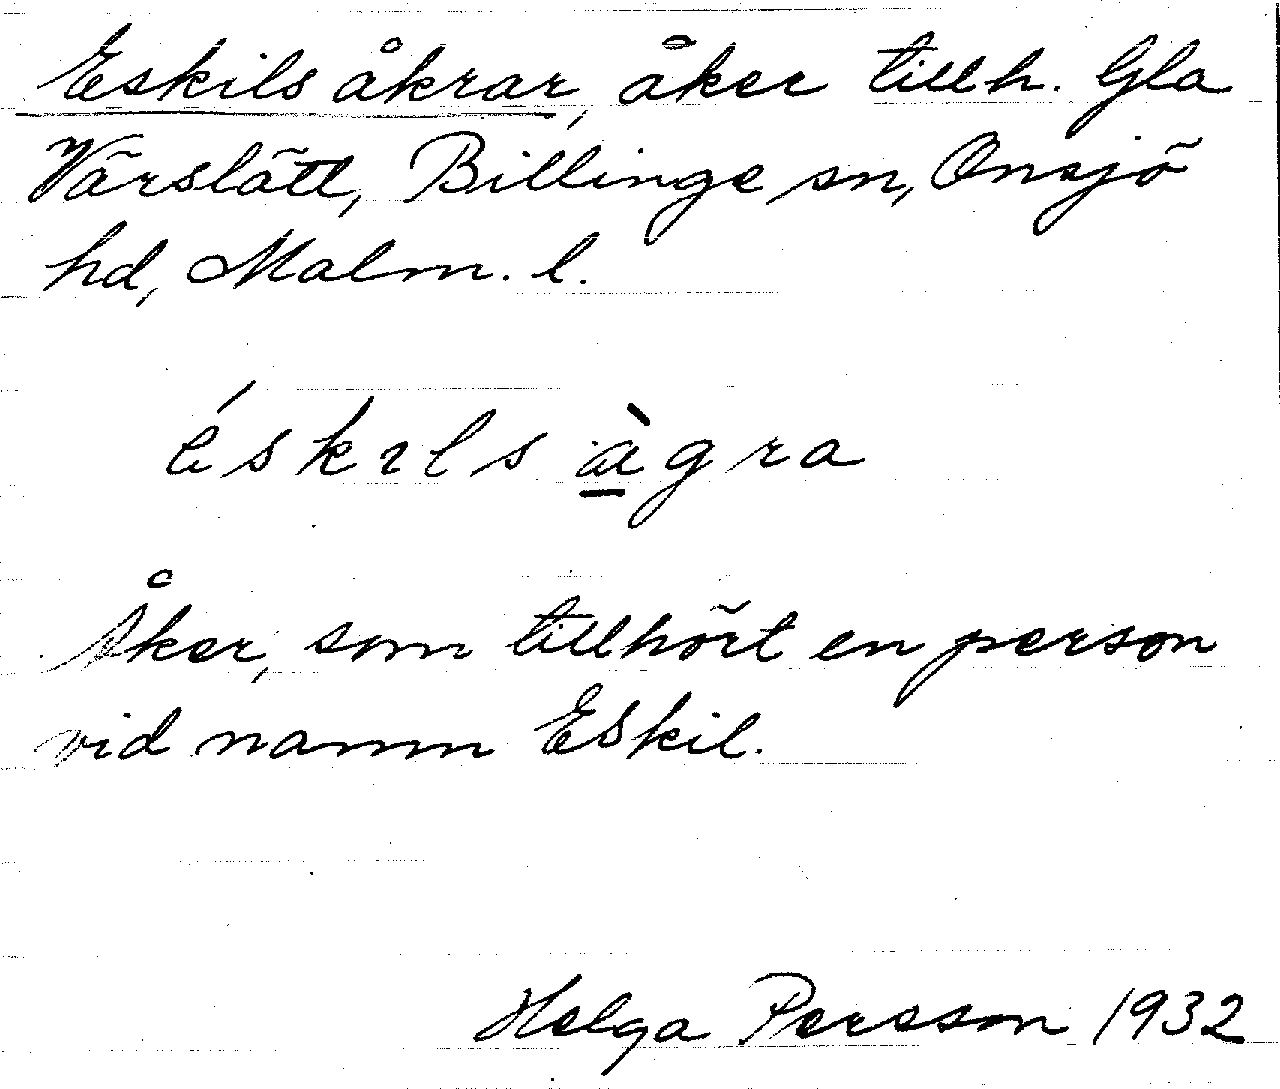 Eskils åkrar, åker tillh. Gla
Värslätt, Billinge sn, Onsjö
hd, Malm. l.
éskıls àgra
Åker, som tillhört en person
vid namn Eskil.
Helga Persson 1932